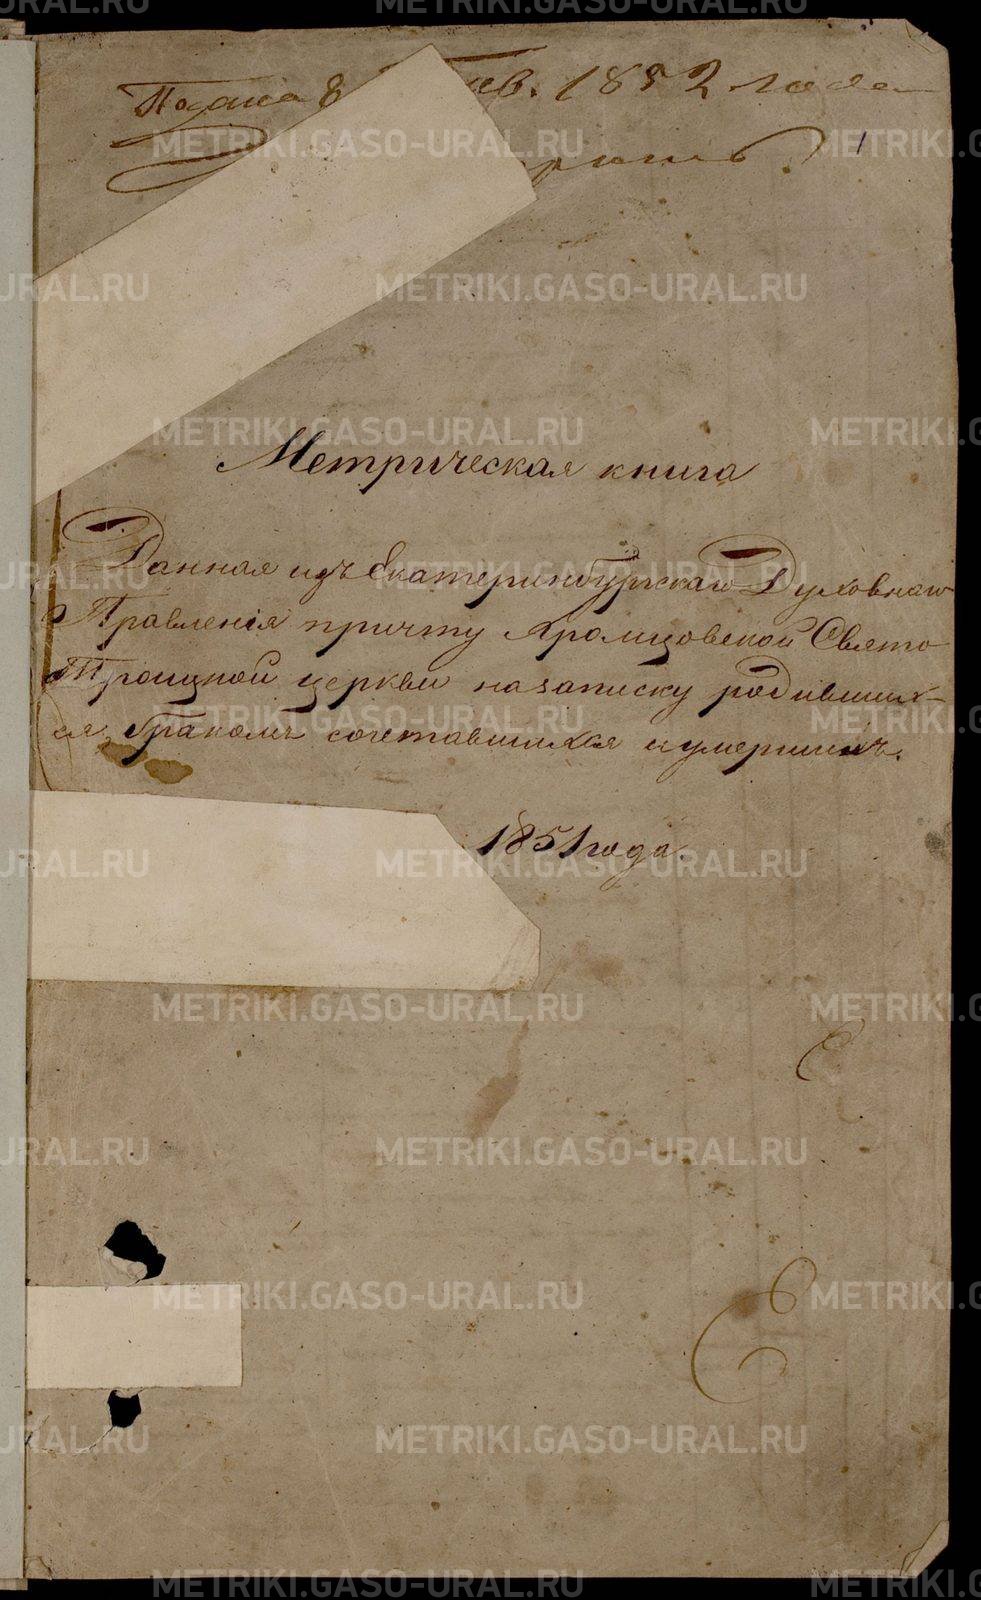 Подана 8 Генв. 1852 года
1
Метрическая книга
Данная изъ Екатеринбургскаго Духовнаго
Правленія причту Хромцовской Свято
Троицкой церкви на записку родивших-
ся, бракомъ сочетавшихся и умершихъ.
1851 года.
METRIKI.GASO-URAL.RU